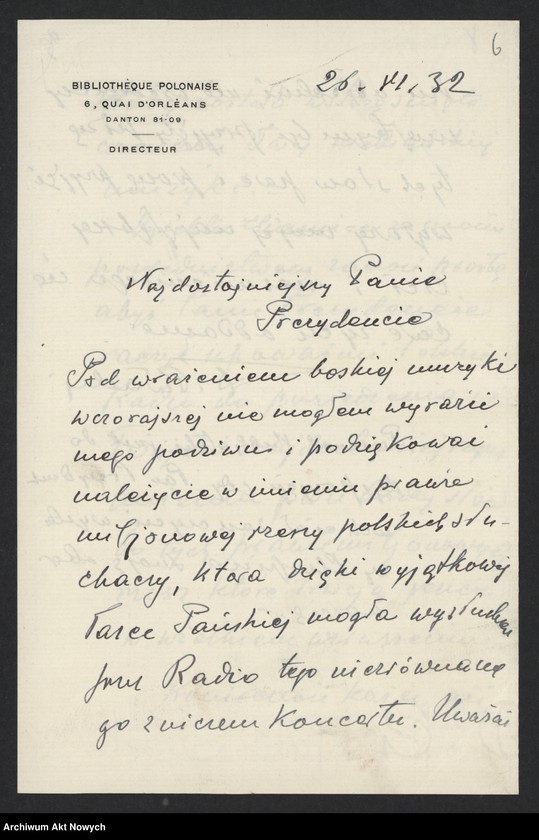 6
BIBLIOTHÈQUE POLONAISE
6, QUAI D'ORLÉANS
DANTON 81-09
DIRECTEUR
26. VI. 32
Najdostojniejszy Panie
Prezydencie
Pod wrażeniem boskiej muzyki
wczorajszej nie mogłem wyrazić
mego podziwu i podziękować
należycie w imieniu prawie
miljonowej rzeszy polskich słu-
chaczy, która dzięki wyjątkowej
łasce Pańskiej mogła wysłuchać
przez Radio tego niezrównane
go zwierem Koncertu. Uważać
Archiwum Akt Nowych